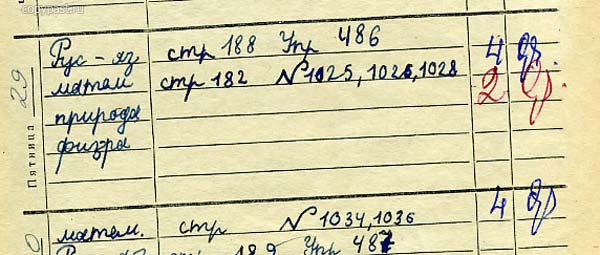 copypast.ru
Пятница 29
Рус-яз стр 188 Упр 486 4
матем стр 182 №1025, 1026, 1028 2
природа
физра
матем. стр №1034, 1036 4
Рус яз стр 189 Упр 487